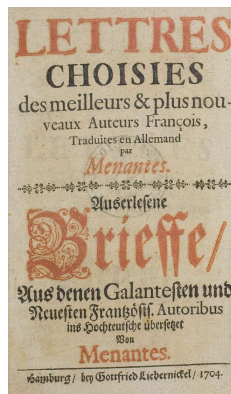 LETTRES
CHOISIES
des meilleurs & plus nou-
veaux Auteurs François,
Traduites en Allemand
par
Menantes.
Auserlesene
Brieffe/
Aus denen Galantesten und
Neuesten Frantzösis. Autoribus
ins Hochteutsche übersetzet
Von
Menantes.
Hamburg / bey Gottfried Liebernickel / 1704.